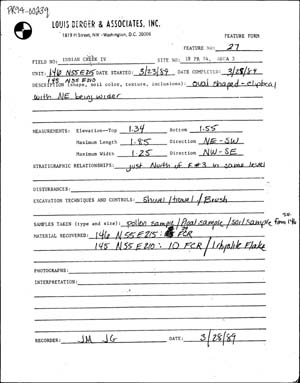 PR94-00239
LOUIS BERGER & ASSOCIATES, INC.
1819 H Street, NW · Washington, D.C. 20006
FEATURE FORM
FEATURE NO.: 27
FIELD NO. INDIAN CREEK IV SITE NO: 18 PR 94, AREA 3
UNIT: 146 N55E215 DATE STARTED: 3/23/89 DATE COMPLETED: 3/28/89
145 N55 E210
DESCRIPTION (shape, soil color, texture, inclusions): oval shaped-eliptical
with NE being wider
MEASUREMENTS: Elevation--Top 1.34 Bottom 1.55
Maximum Length 1.85 Direction NE-SW
Maximum Width 1.25 Direction NW-SE
STRATIGRAPHIC RELATIONSHIPS: just North of F#3 in same level
DISTURBANCES:
EXCAVATION TECHNIQUES AND CONTROLS: Shuvel/trowel/Brush
SAMPLES TAKEN (type and size): pollen sample/float sample/soil sample from 146
MATERIAL RECOVERED: 146 N55E215: FCR
145 N55E210: 10 FCR / 1 rhyolite flake
PHOTOGRAPHS:
INTERPRETATION:
RECORDER: JM JG DATE: 3/28/89